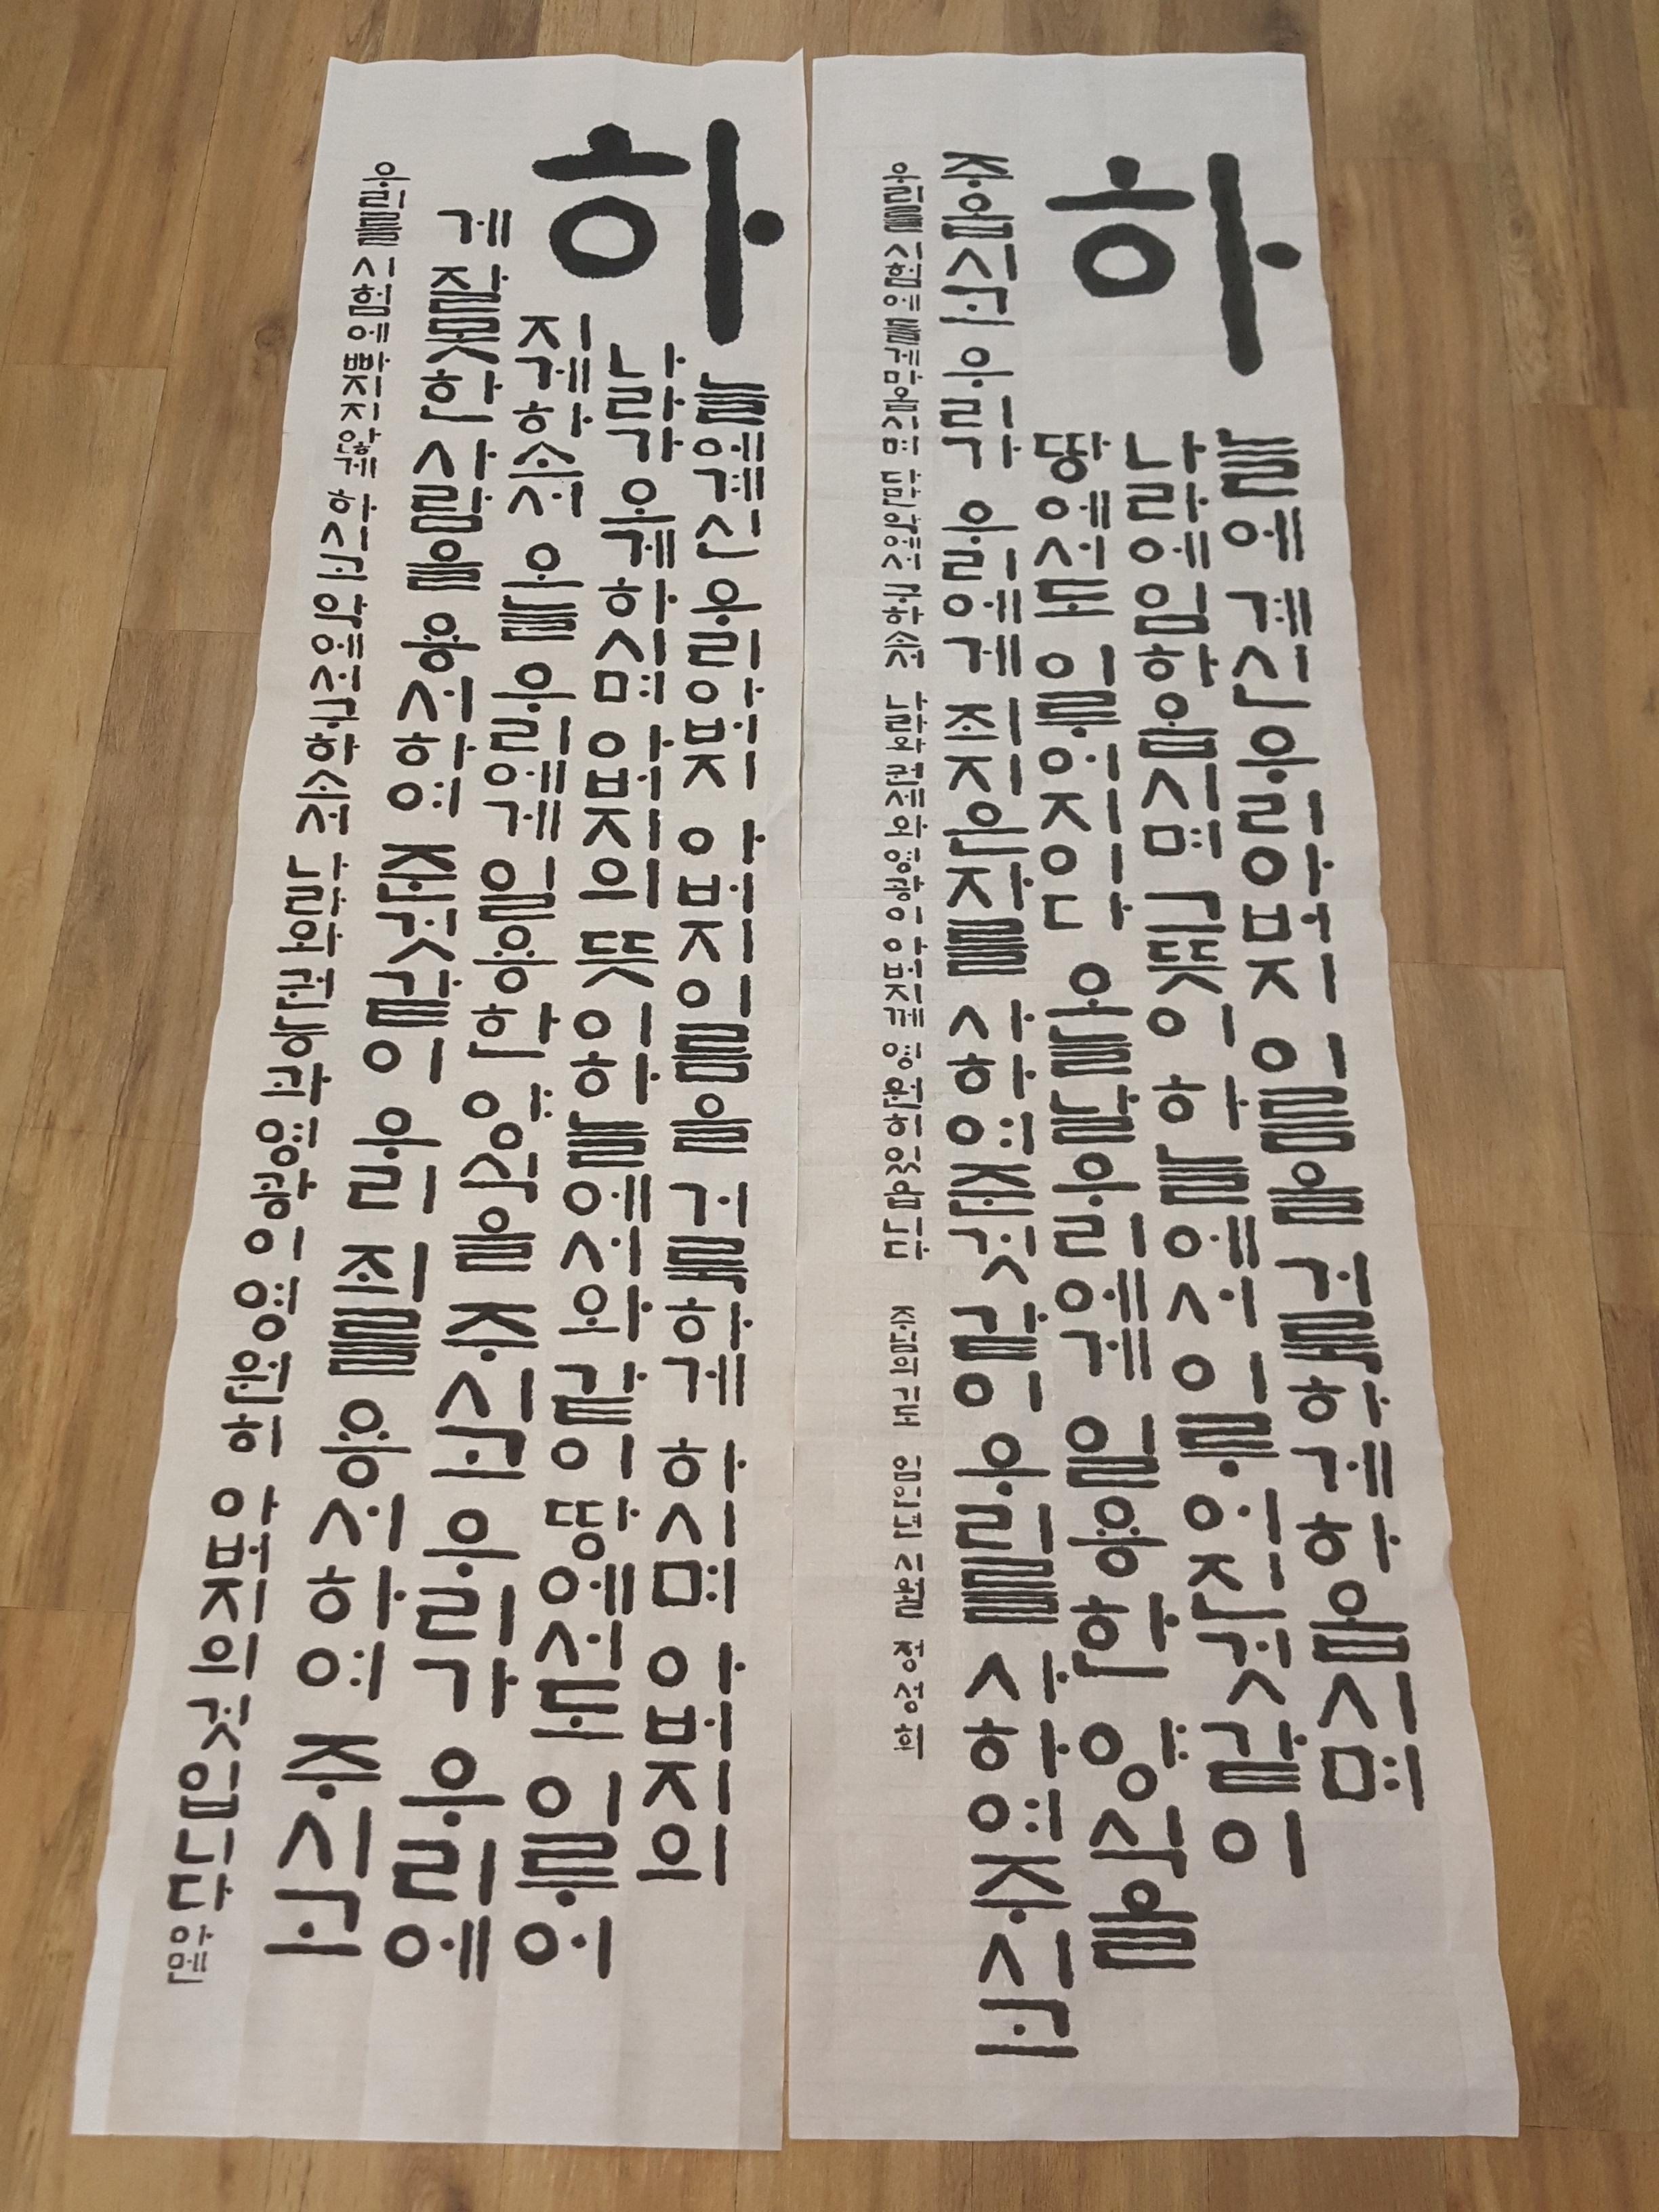 하늘에계신우리아버지 이름을 거룩하게하옵시며
나라에임하옵시며 뜻이 하늘에서 이루어진것같이
땅에서도 이루어지이다 오늘날우리에게 일용할 양식을
주옵시고 우리가 우리에게 죄지은자를 사하여준것같이 우리를 사하여주시고
우리를 시험에 들게마옵시며 다만악에서 구하소서 나라와 권세와 영광이 아버지께
하늘에계신우리아버지 아버지이름을 거룩하게 하시며 아버지의
나라가오게하시며 아버지의 뜻이하늘에서와 같이 땅에서도 이루어
지게하소서 오늘 우리에게일용할 양식을 주시고 우리가 우리에
게 잘못한 사람을 용서하여 준것같이 우리 죄를 용서하여 주시고
우리를 시험에 빠지지않게 하시고 악에서구하소서 나라와권세와 영광이 영원히 아버지의것입니다